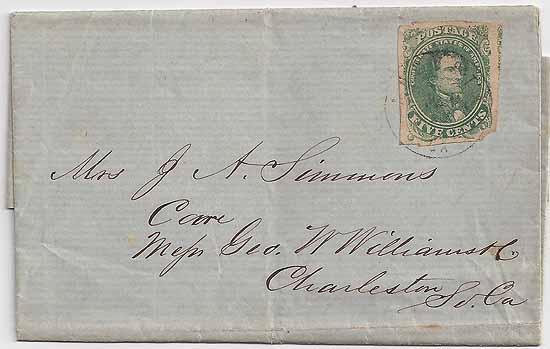 POSTAGE
CONFEDERATE STATES OF AMERICA
FIVE CENTS
Mrs J A. Simmons
Care
Mess Geo. W Williams & Co.
Charleston
So. Ca